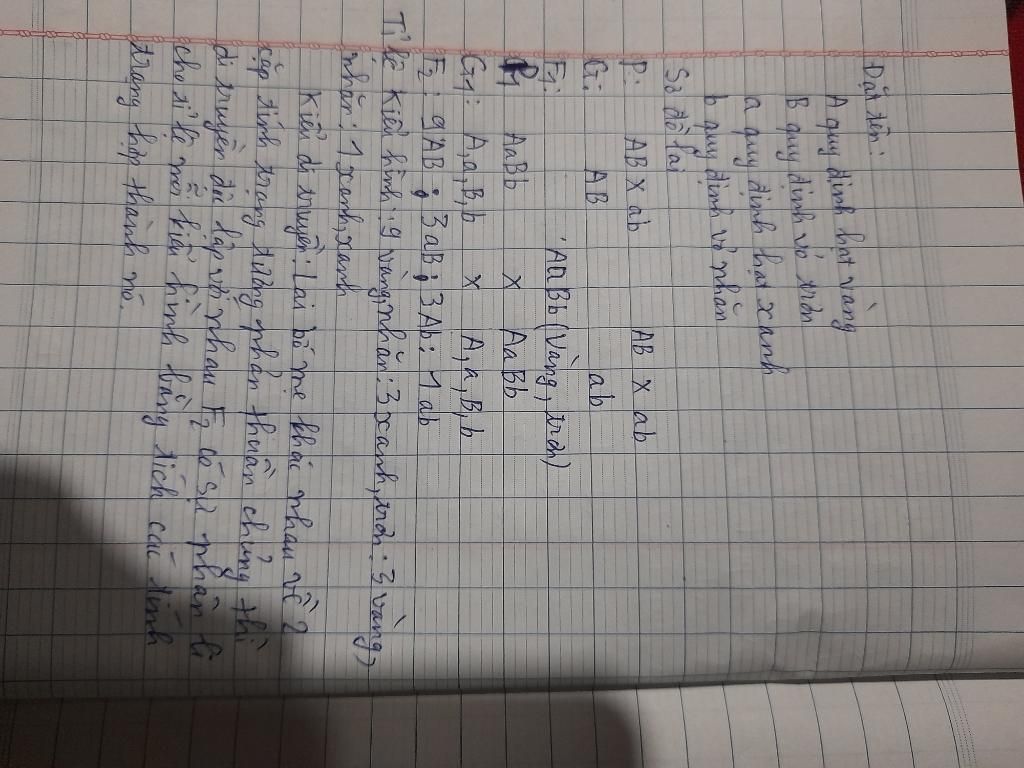 Đặt tên:
A quy định hạt vàng
B quy định vỏ trơn
a quy định hạt xanh
b quy định vỏ nhăn
Sơ đồ lai
P: AB x ab AB x ab
G: AB ab
F1: AaBb (Vàng, trơn)
AaBb x AaBb
G1: A,a,B,b x A,a,B,b
F2: 9AB : 3aB : 3Ab : 1ab
Tỉ lệ kiểu hình: 9 vàng, nhăn : 3 xanh, trơn : 3 vàng,
nhăn : 1 xanh, xanh
Kiểu di truyền: Lai bố mẹ khác nhau về 2
cặp tính trạng tương phản thuần chủng thì
di truyền độc lập với nhau F2 có sự phân li
cho tỉ lệ mỗi kiểu hình bằng tích các tính
trạng hợp thành nó.